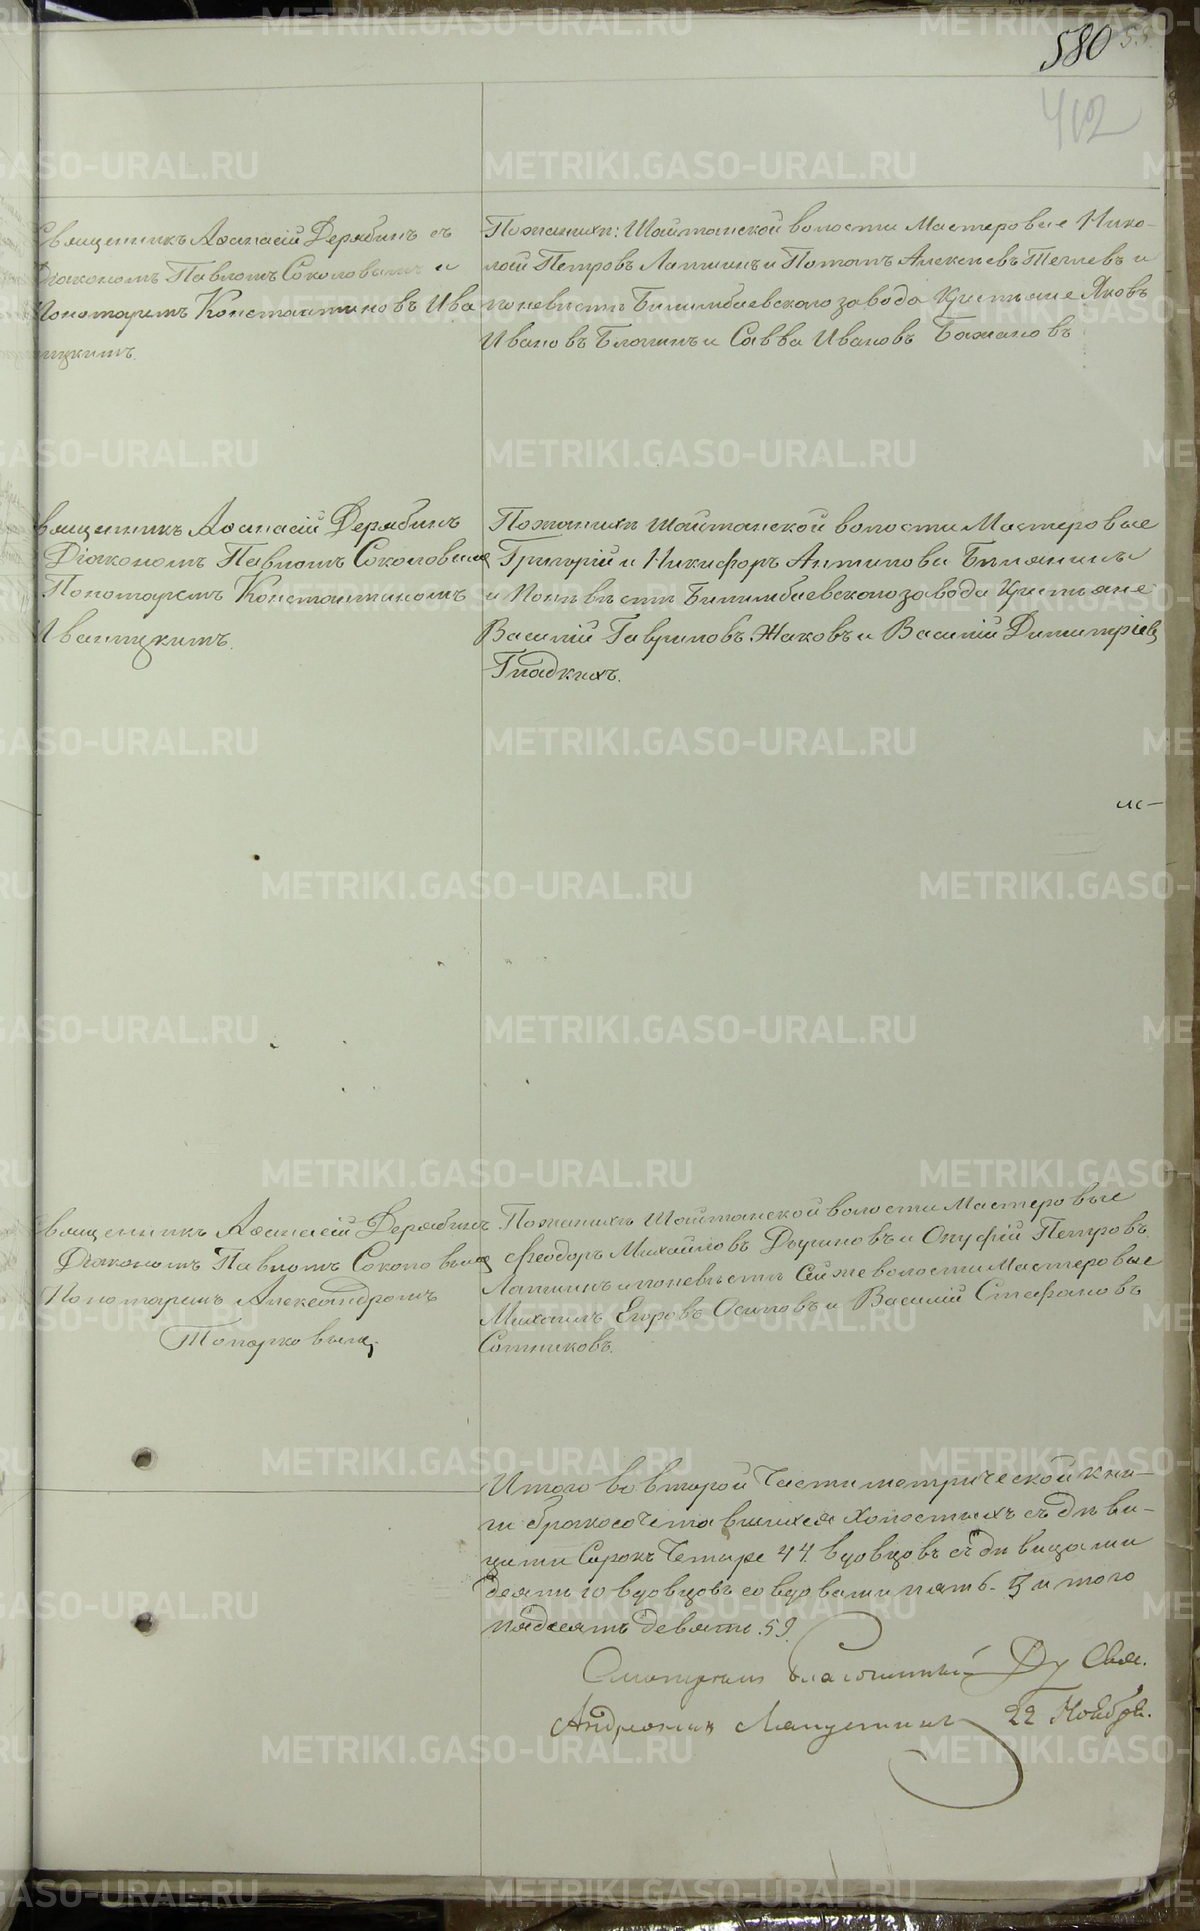 580
55.
412
Священникъ Аѳанасій Дерябинъ съ
Діакономъ Павломъ Соколовымъ и
Пономаремъ Константиновъ Ива
ницкимъ.
По женихѣ: Шайтанской волости Мастеровые Нико-
лай Петровъ Лапшинъ и Потапъ Алексѣевъ и
по невѣстѣ Билимбаевскаго завода Крестьяне Яковъ
Ивановъ и Савва Ивановъ Бажановъ
Священникъ Аѳанасій Дерябинъ
Діакономъ Павломъ Соколовымъ
Пономаремъ Константиномъ
Иваницкимъ.
По женихѣ Шайтанской волости Мастеровые
Григорій и Никифоръ Антиповы
и По невѣстѣ Билимбаевскаго завода Крестьяне
Василій Гавриловъ Жаковъ и Василій Димитріевъ
Гладкихъ.
Священникъ Аѳанасій Дерябинъ
Діакономъ Павломъ Соколовымъ
Пономаремъ Александромъ
Топорковымъ
По женихѣ Шайтанской волости Мастеровые
Феодоръ Михайловъ и Онуфрій Петровъ
Лапшинъ и по невѣстѣ Сей же волости Мастеровые
Михаилъ Егоровъ Осиповъ и Василій Стефановъ
Сотниковъ.
Итого во второй Части метрической кни-
ги бракосочетавшихся Холостыхъ съ дѣви-
цами Сорокъ Четыре 44. вдовцовъ съ дѣвицами
десять 10 вдовцовъ со вдовами пять - 5 итого
пядесятъ девять. 59.
Смотрѣлъ Благочинный
Андроникъ
22 Ноября.